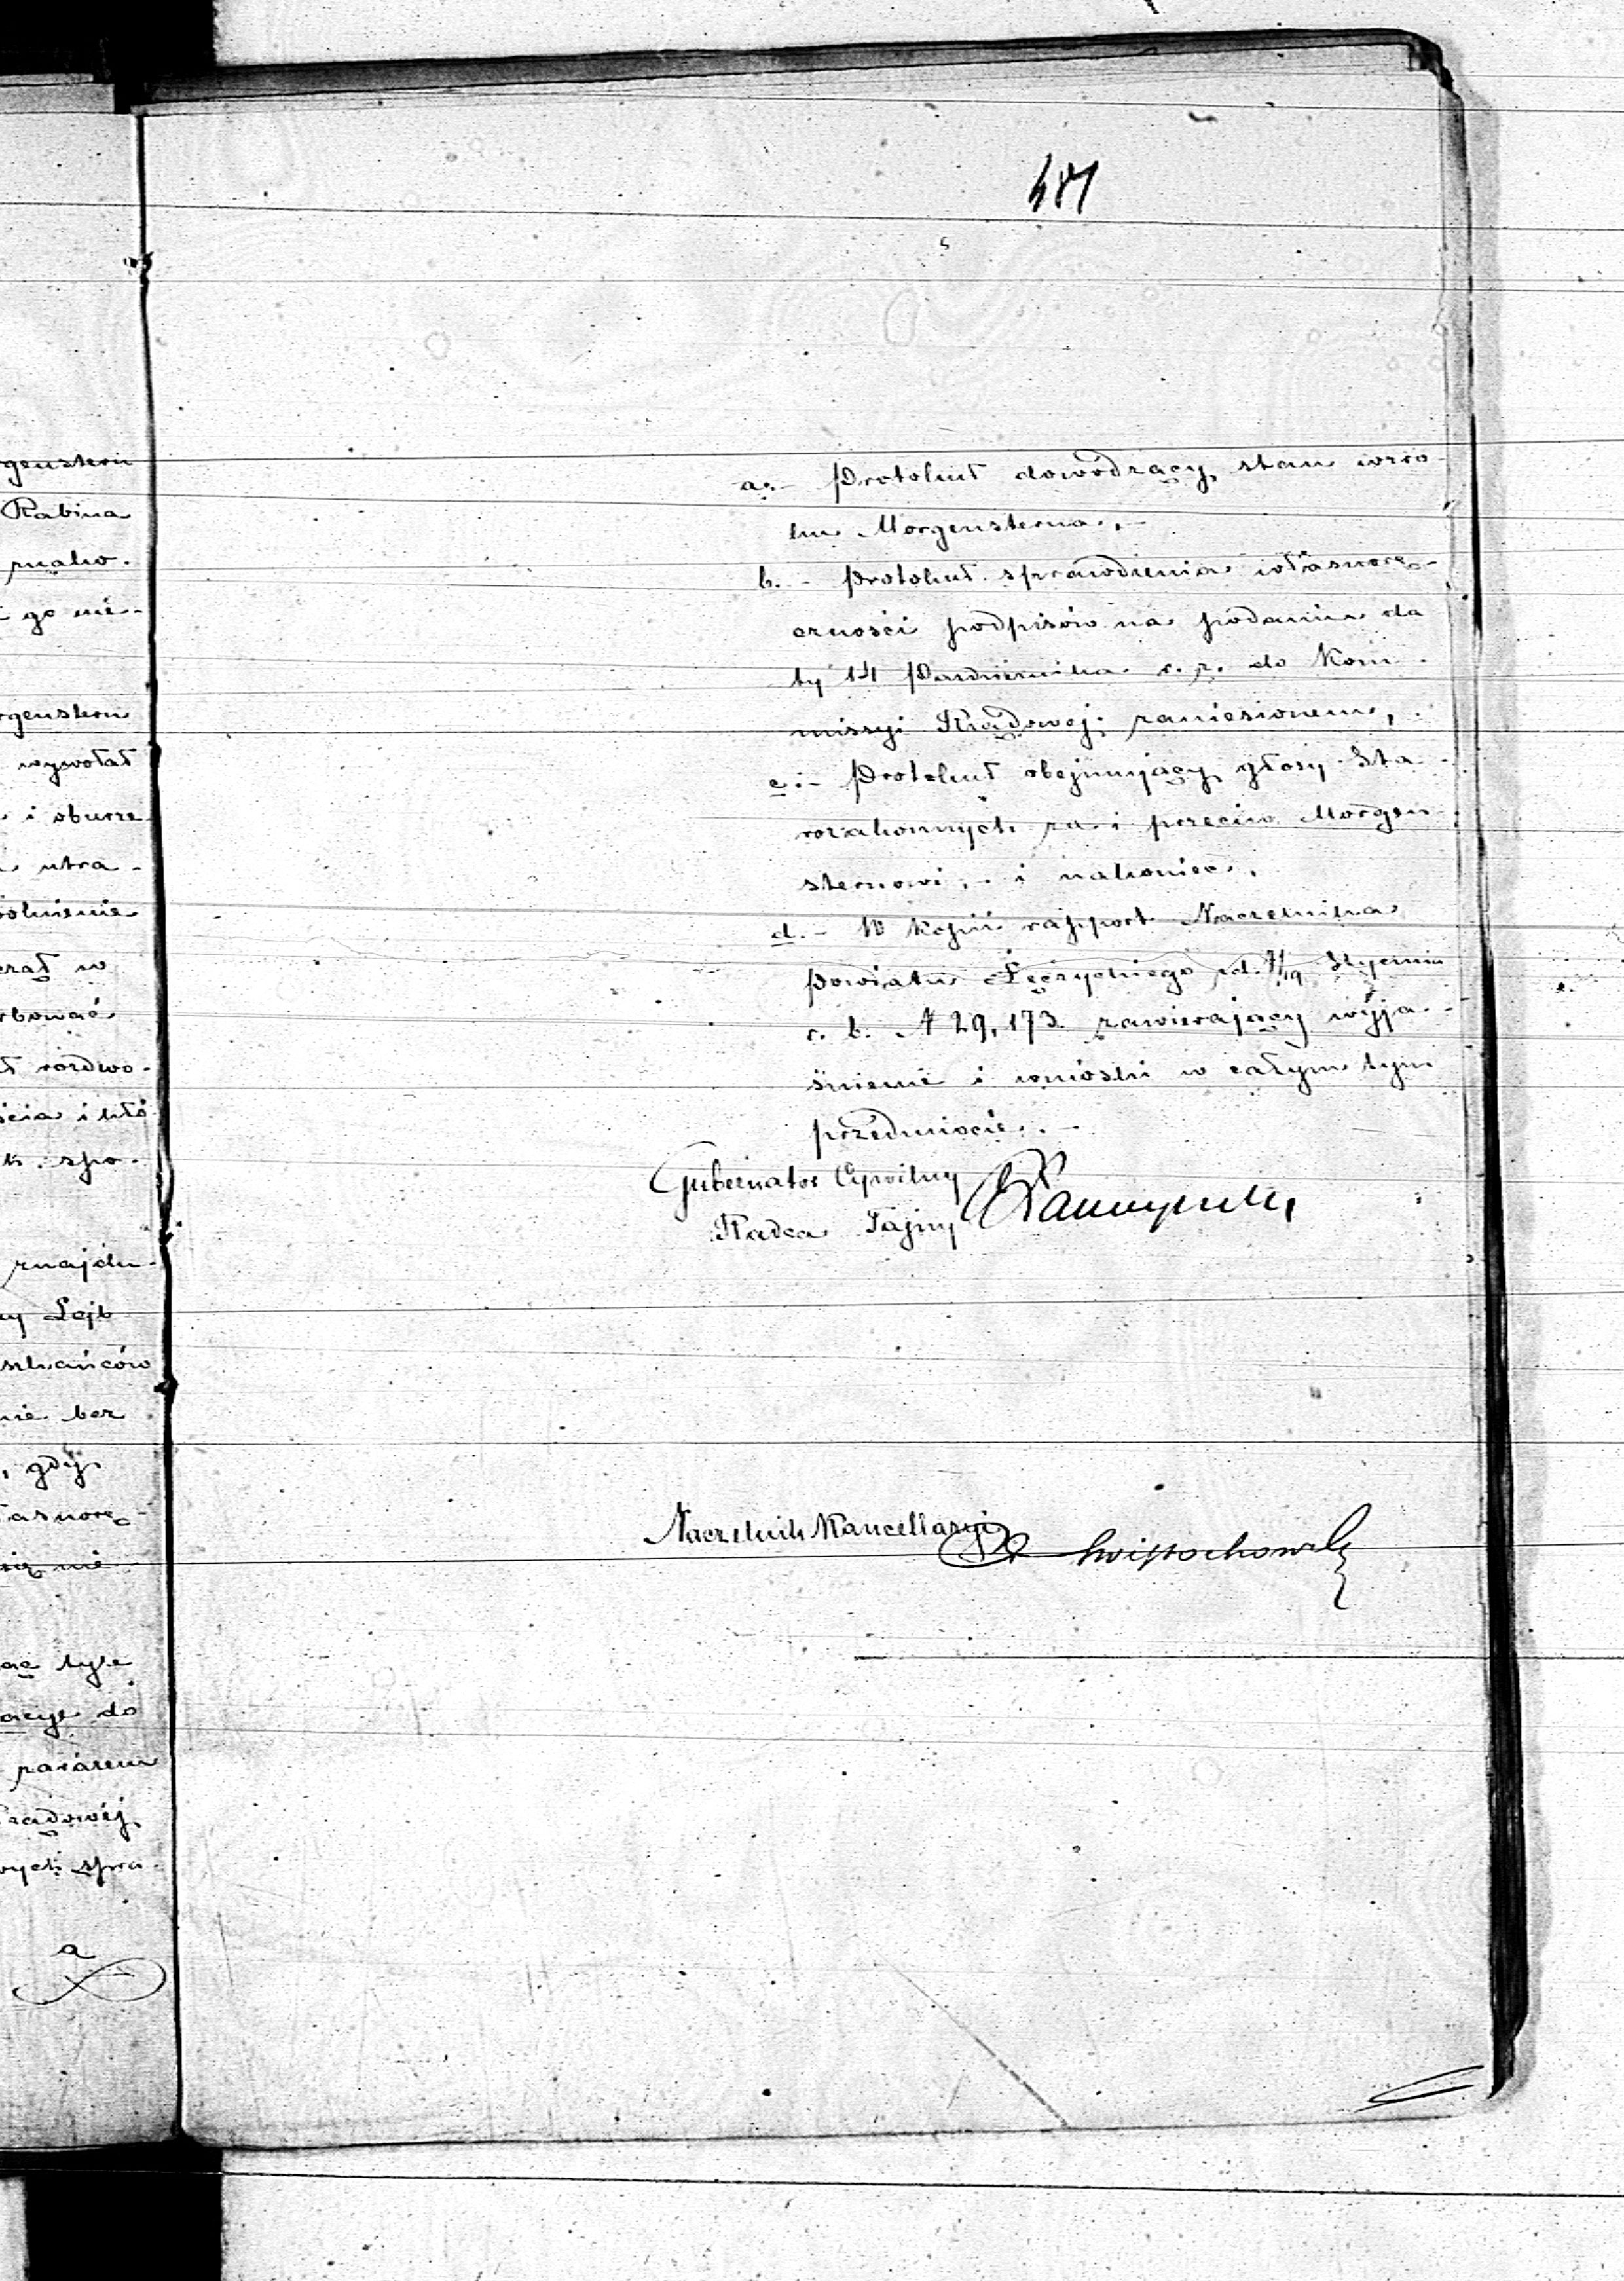 genstern
Rabina
go nie-
rgenstern
wywołał
i oburze
utra-
rozdwo-
spo-
znajdu-
Lejb
szkańców
nie bez
, gdy
asnorę-
się nie
tyle
acye do
zarazem
rządowéj
spra-
a
487
a.- Protokuł dowodzący stan wzro-
ku Morgensterna,-
b.- Protokuł sprawdzenia własnorę-
czności podpisów na podaniu da
ty 14 Października r. z. do Kom-
missyi Rządowej zaniesionem,
c.- Protokuł obejmujący głosy Sta-
rozakonnych za i przeciw Morgen
sternowi,- i nakoniec,
d.- W kopii rapport Naczelnika
Powiatu Łęczyckiego d. 7/19 Stycznia
r. b. N 29,173. zawierający wyja-
śnienie i wnioski w całym tym
przedmiocie.-
Gubernator Cywilny
Radca Tajny
Naczelnik Kancellaryi
Świętochowski